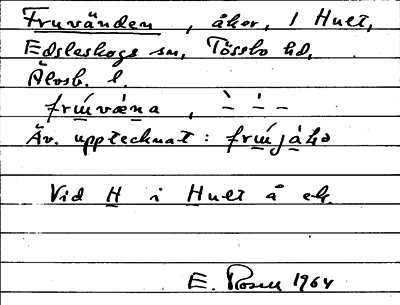 Fruvänden, åker, 1 Hult,
Edsleskogs sn, Tössbo hd,
Älvsb. l.
Äv. upptecknat:
Vid H i Hult å ek.
E. Rosell 1964